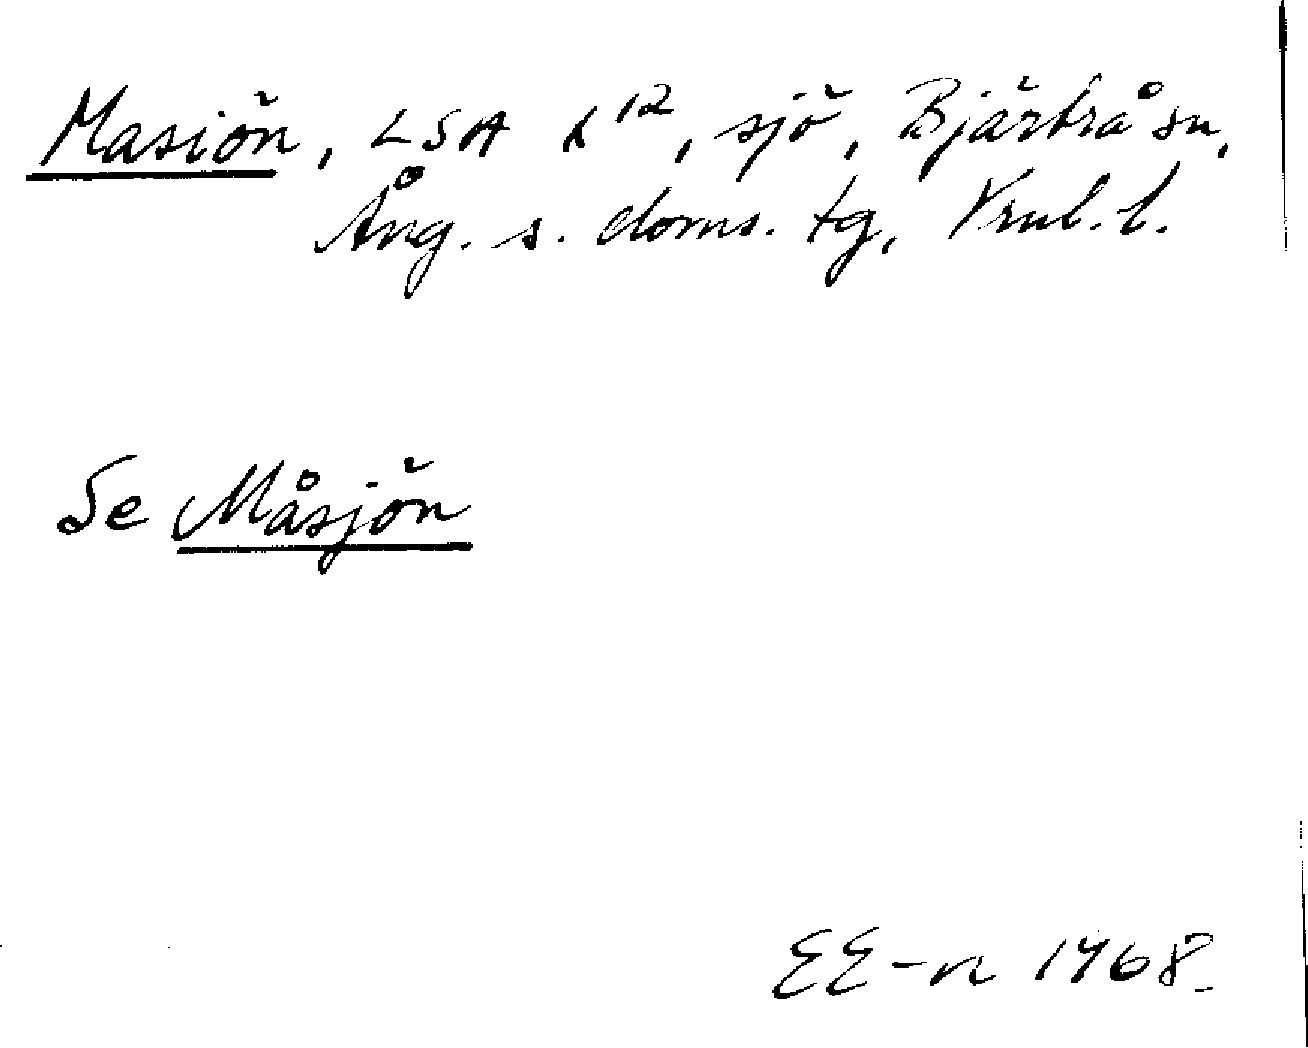 Masiön, LSA X¹², sjö, Bjärtrå sn,
Ång. s. doms. tg, Vrnl. l.
Se Måsjön
EE-n 1968.